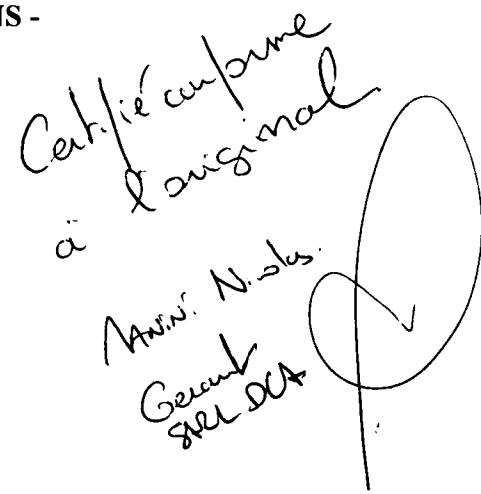 NS -
Certifié conforme
à l'original
Nicolas
Gerant
SARL DCA